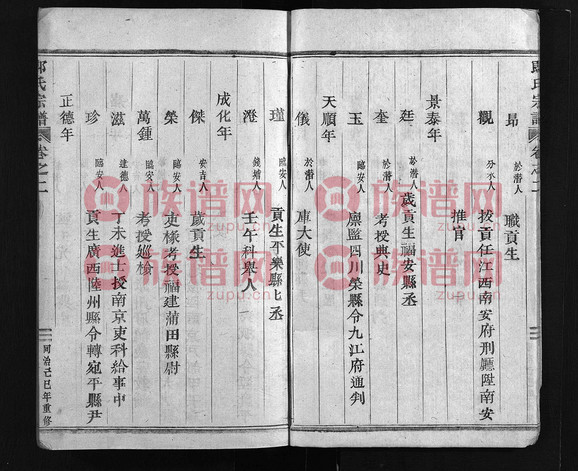 昻 於潛人 職貢生
觀 分水人 拔貢任江西南安府刑廳陞南安
推官
景泰年
廷 於潛人 歲貢生福安縣丞
奎 於潛人 考授典史
玉 臨安人 廪監四川榮縣令九江府通判
天順年
儀 於潛人 庫大使
瑾 臨安人 貢生平樂縣丞
澄 錢塘人 壬午科舉人
成化年
傑 安吉人 歲貢生
榮 臨安人 吏椽考授福建蒲田縣尉
萬鍾 臨安人 考授巡檢
滋 建德人 丁未進士授南京吏科給事中
珍 臨安人 貢生廣西陸州縣令轉宛平縣尹
正德年
氏宗譜 卷之二
同治己巳年重修
族谱网
zupu.cn
族谱网
zupu.cn
族谱网
zupu.cn
族谱网
zupu.cn